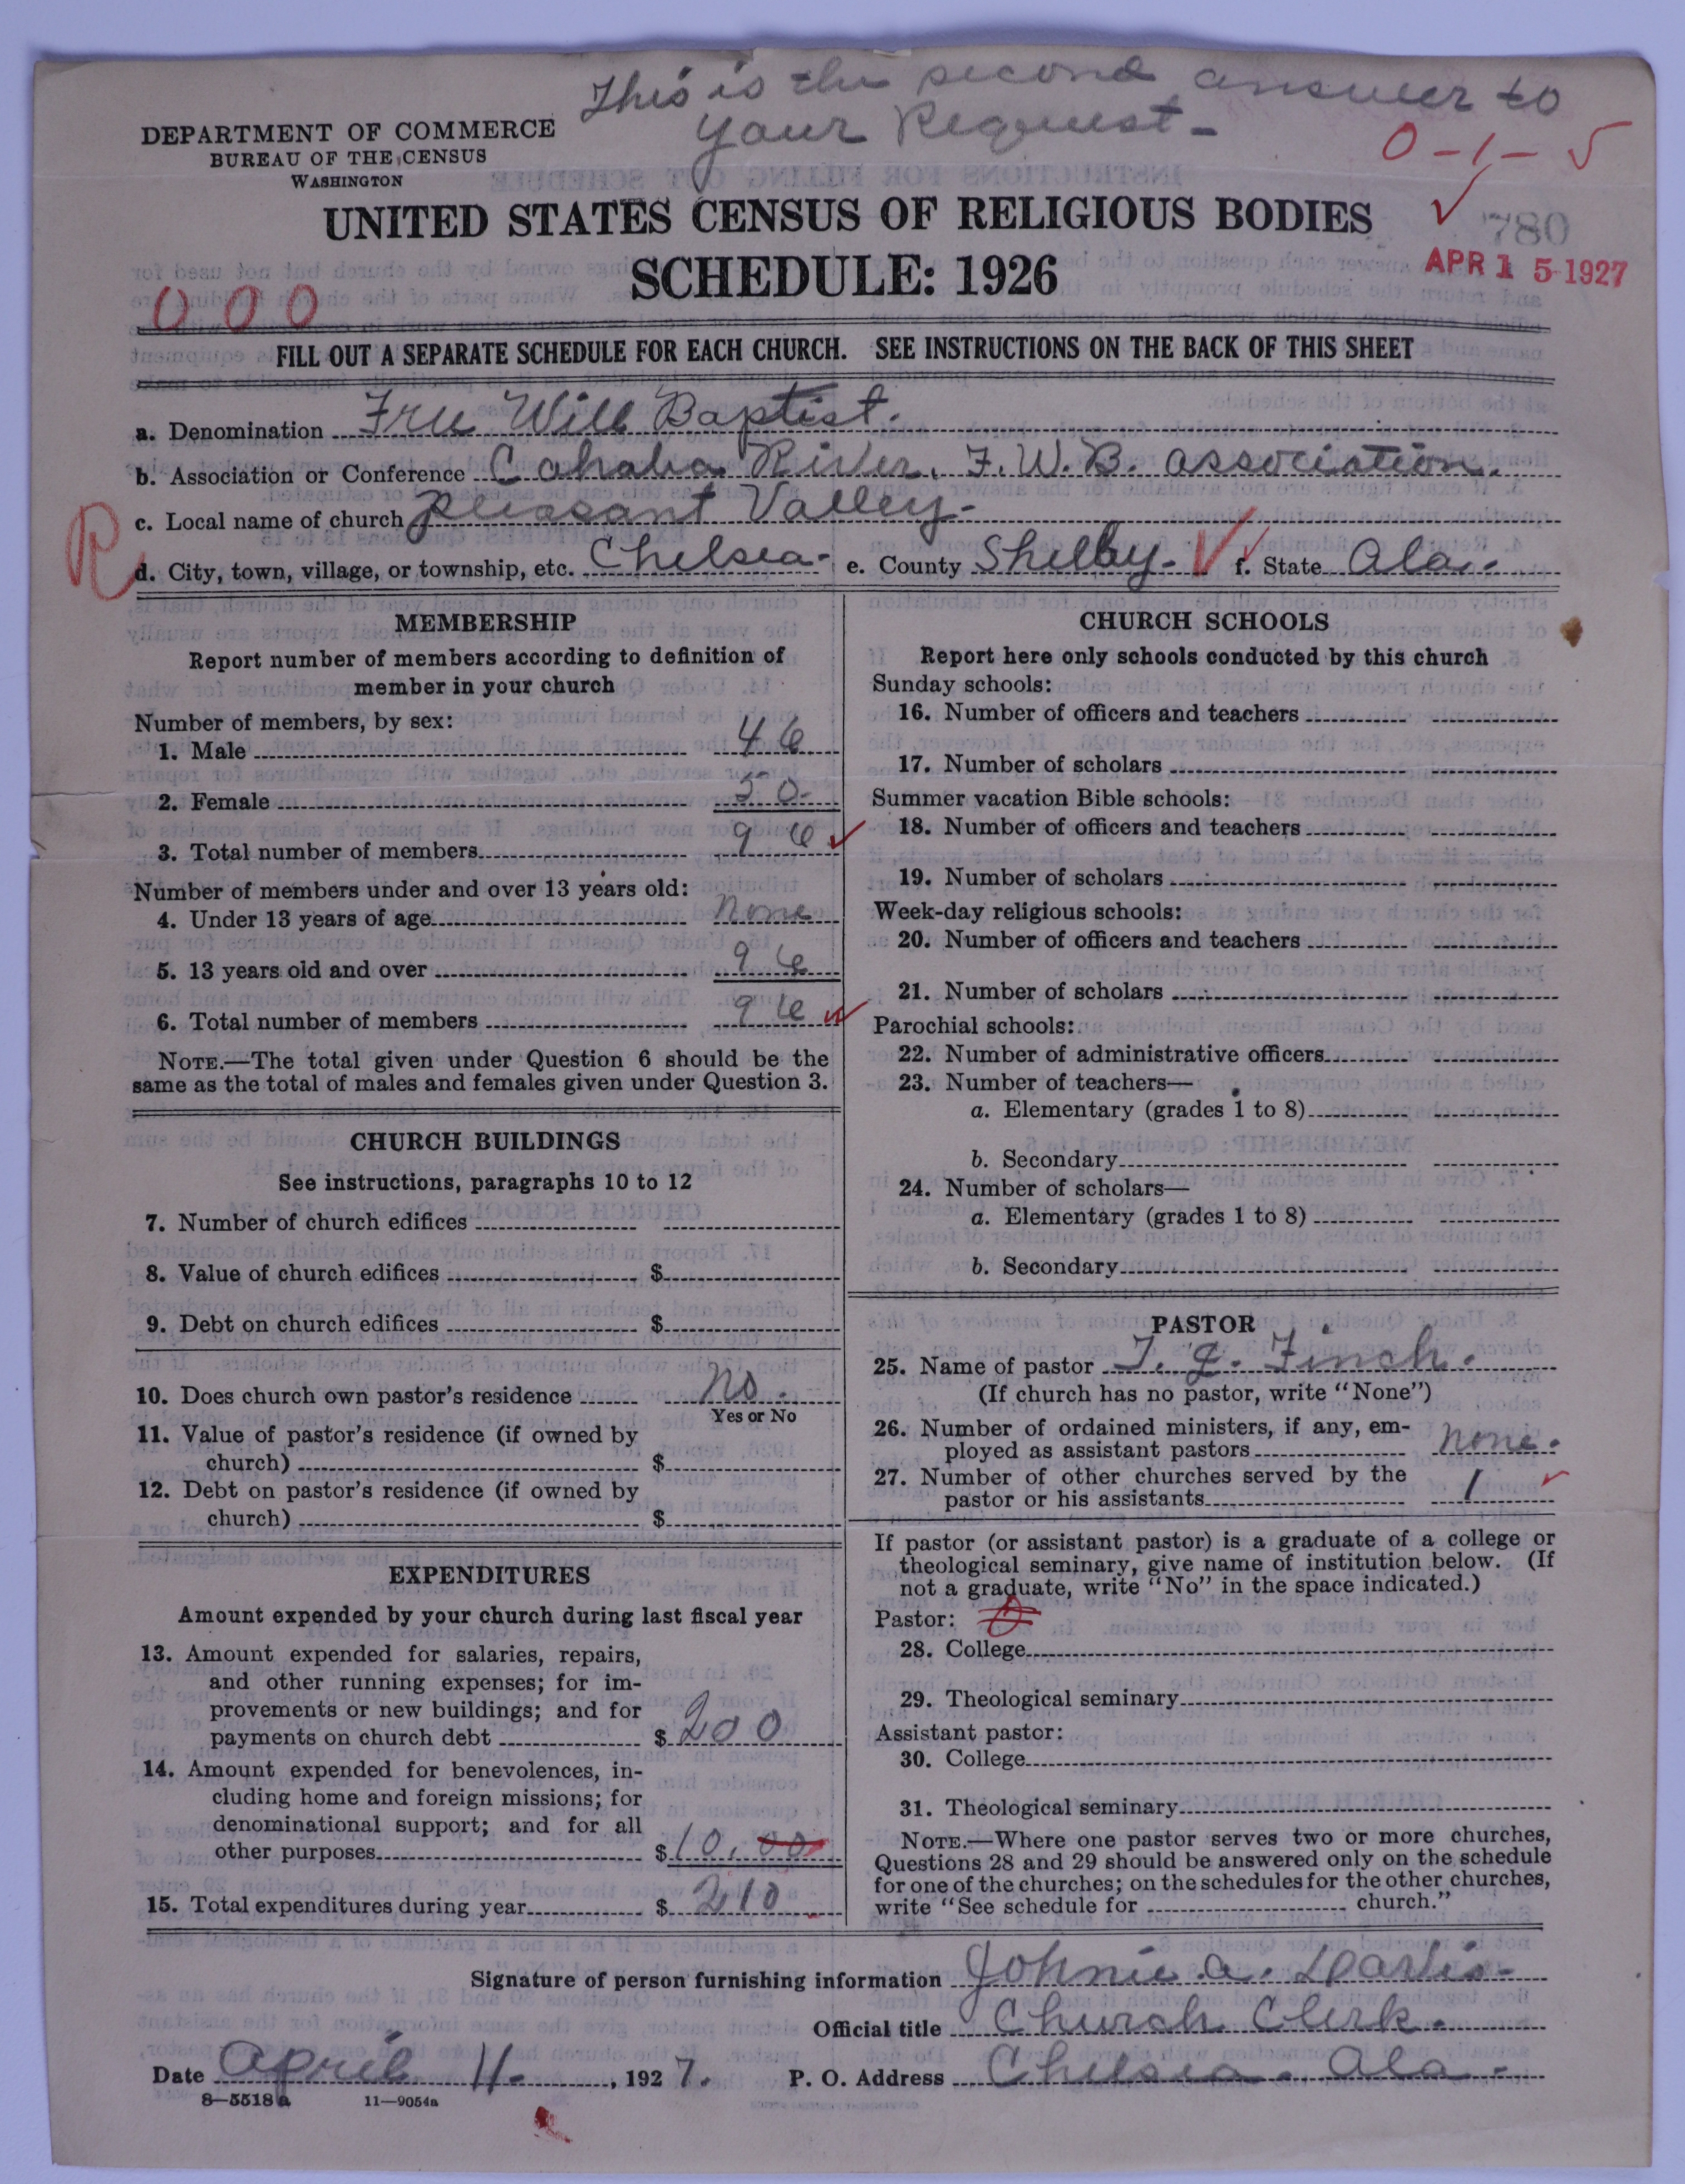 This is the second answer to
your Request-
DEPARTMENT OF COMMERCE
BUREAU OF THE CENSUS
WASHINGTON
0-1-5
UNITED STATES CENSUS OF RELIGIOUS BODIES
780
SCHEDULE: 1926
APR 15 1927
000
FILL OUT A SEPARATE SCHEDULE FOR EACH CHURCH. SEE INSTRUCTIONS ON THE BACK OF THIS SHEET
a. Denomination Free Will Baptist.
b. Association or Conference Cahaba River. F.W.B. association.
c. Local name of church pleasant Valley-
R
d. City, town, village, or township, etc. Chelsea- e. County Shelby- f. State Ala.
MEMBERSHIP
Report number of members according to definition of
member in your church
Number of members, by sex:
1. Male 46
2. Female 50-
3. Total number of members 96
Number of members under and over 13 years old:
4. Under 13 years of age none
5. 13 years old and over 96
6. Total number of members 96
NOTE.—The total given under Question 6 should be the
same as the total of males and females given under Question 3.
CHURCH BUILDINGS
See instructions, paragraphs 10 to 12
7. Number of church edifices
8. Value of church edifices $
9. Debt on church edifices $
10. Does church own pastor's residence no.
Yes or No
11. Value of pastor's residence (if owned by
church) $
12. Debt on pastor's residence (if owned by
church) $
EXPENDITURES
Amount expended by your church during last fiscal year
13. Amount expended for salaries, repairs,
and other running expenses; for im-
provements or new buildings; and for
payments on church debt $ 200
14. Amount expended for benevolences, in-
cluding home and foreign missions; for
denominational support; and for all
other purposes $ 10.00
15. Total expenditures during year $ 210
CHURCH SCHOOLS
Report here only schools conducted by this church
Sunday schools:
16. Number of officers and teachers
17. Number of scholars
Summer vacation Bible schools:
18. Number of officers and teachers
19. Number of scholars
Week-day religious schools:
20. Number of officers and teachers
21. Number of scholars
Parochial schools:
22. Number of administrative officers
23. Number of teachers—
a. Elementary (grades 1 to 8)
b. Secondary
24. Number of scholars—
a. Elementary (grades 1 to 8)
b. Secondary
PASTOR
25. Name of pastor Finch.
(If church has no pastor, write "None")
26. Number of ordained ministers, if any, em-
ployed as assistant pastors none.
27. Number of other churches served by the
pastor or his assistants 1
If pastor (or assistant pastor) is a graduate of a college or
theological seminary, give name of institution below. (If
not a graduate, write "No" in the space indicated.)
Pastor:
28. College
29. Theological seminary
Assistant pastor:
30. College
31. Theological seminary
NOTE.—Where one pastor serves two or more churches,
Questions 28 and 29 should be answered only on the schedule
for one of the churches; on the schedules for the other churches,
write "See schedule for church."
Signature of person furnishing information Johnie a.
Official title Church Clerk.
Date april 11. , 1927. P. O. Address Chelsea. Ala-
8—5518a 11—9054a